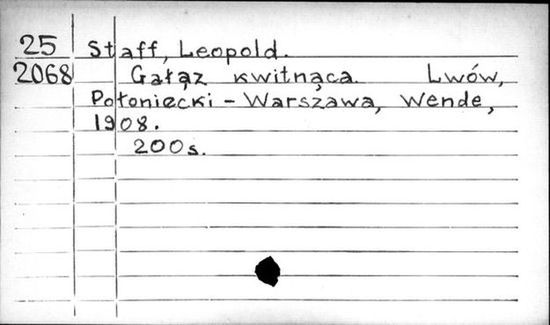 25 Staff, Leopold.
2068 Gałąz kwitnąca. Lwów,
Połoniecki - Warszawa, Wende,
1908.
200s.